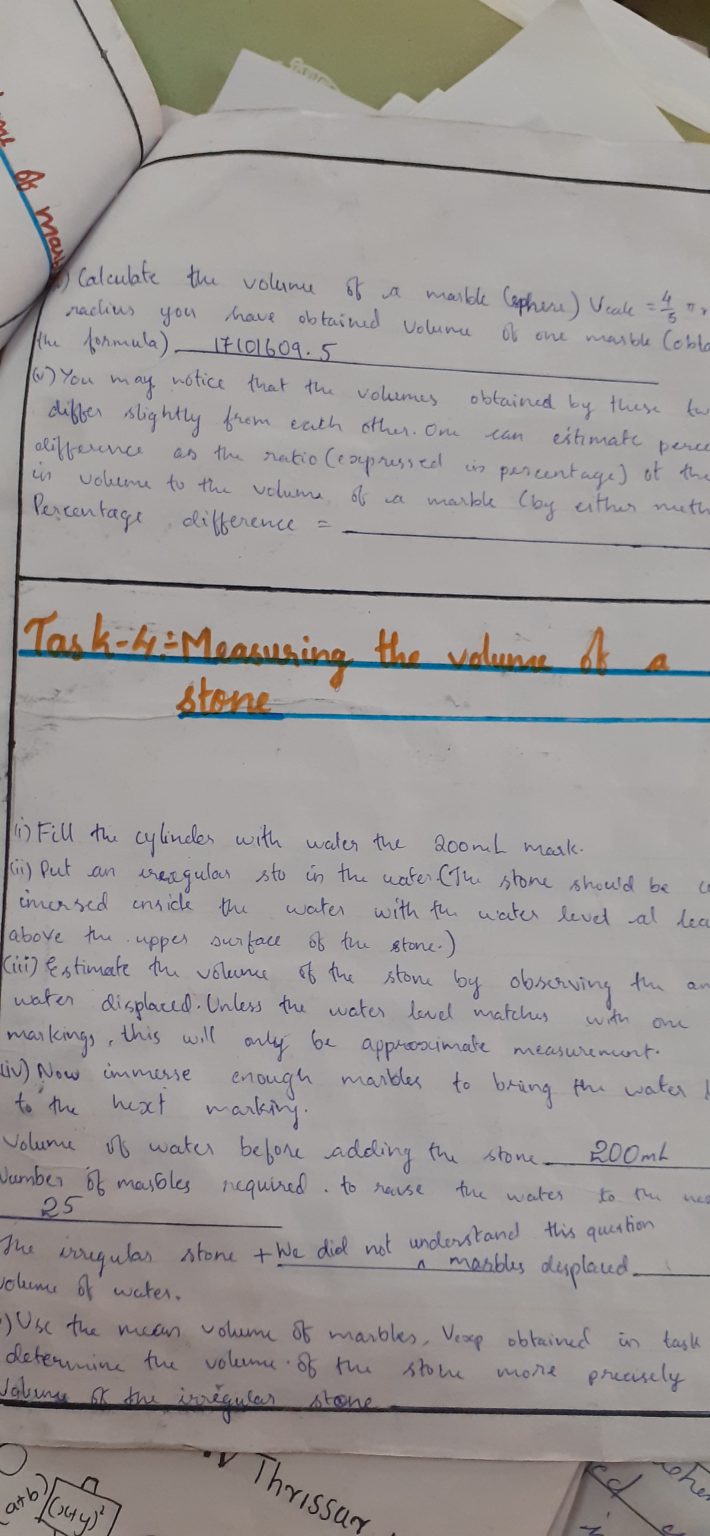 of mar
Calculate the volume of a marble (sphere) Vcalc = 4/3 π r
radius you have obtained volume of one marble (obta
the formula) 17101609.5
(v) You may notice that the volumes obtained by these tw
differ slightly from eath other. One can estimate perce
difference as the ratio (expressed in percentage) of the
in volume to the volume of a marble (by either meth
Percentage difference =
Task-4:- Measuring the volume of a
stone
(i) Fill the cylinder with water the 200mL mark.
(ii) Put an irregular sto in the water (The stone should be c
imersed inside the water with the water level at lea
above the upper surface of the stone.)
(iii) Estimate the volume of the stone by observing the am
water displaced. Unless the water level matches with one
markings, this will only be approximate measurement.
(iv) Now immerse enough marbles to bring the water l
to the next marking.
Volume of water before adding the stone 200mL
Number of marbles required. to raise the water to the nex
25
The irregular stone + We did not understand this question
marbles displaced
volume of water.
) Use the mean volume of marbles, Vexp obtained in task
determine the volume of the stone more precisely
Volume of the irregular stone
Thrissar
a+b)
(x+y)²